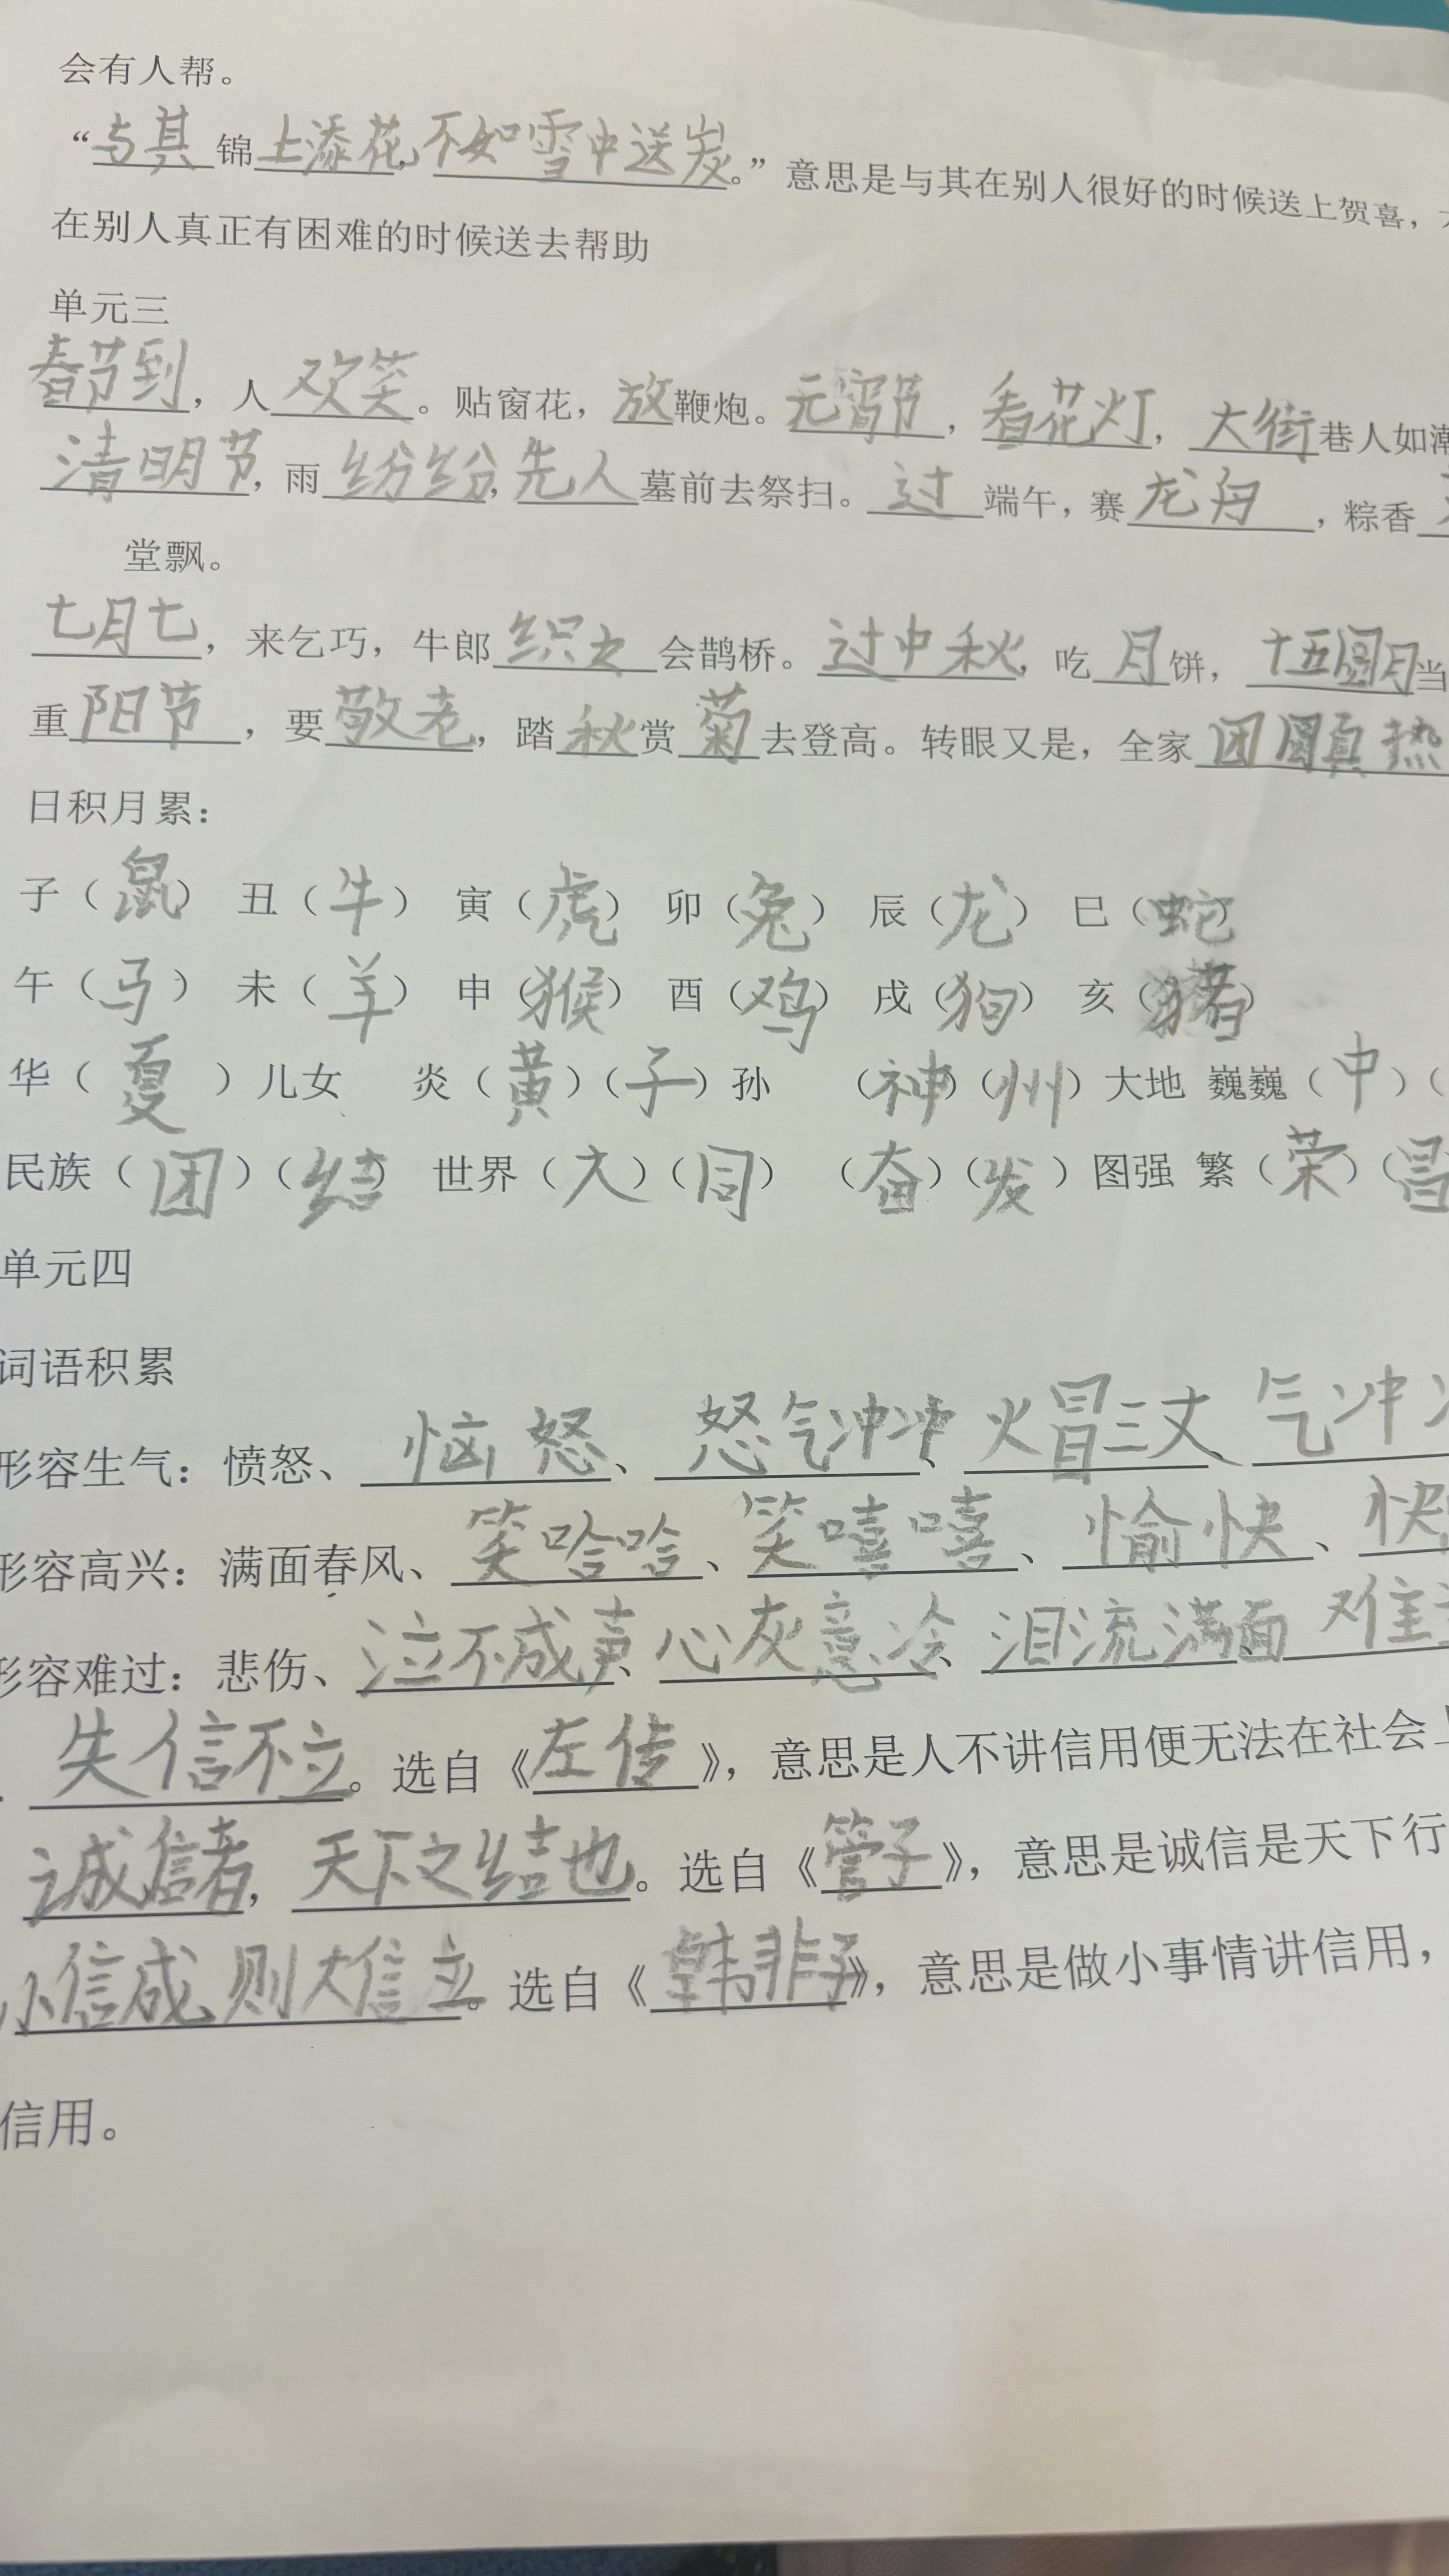 会有人帮。
“与其锦上添花,不如雪中送炭。”意思是与其在别人很好的时候送上贺喜，
在别人真正有困难的时候送去帮助
单元三
春节到，人欢笑。贴窗花，放鞭炮。元宵节，看花灯，大街巷人如潮
清明节，雨纷纷,先人墓前去祭扫。过端午，赛龙舟，粽香
堂飘。
七月七，来乞巧，牛郎织女会鹊桥。过中秋，吃月饼，十五圆月当
重阳节，要敬老，踏秋赏菊去登高。转眼又是，全家团圆真热
日积月累：
子（鼠） 丑（牛） 寅（虎） 卯（兔） 辰（龙） 巳（蛇）
午（马） 未（羊） 申（猴） 酉（鸡） 戌（狗） 亥（猪）
华（夏）儿女 炎（黄）（子）孙 （神）（州）大地 巍巍（中）（
民族（团）（结） 世界（大）（同） （奋）（发）图强 繁（荣）（昌
单元四
词语积累
形容生气：愤怒、恼怒、怒气冲冲、火冒三丈、气冲
形容高兴：满面春风、笑哈哈、笑嘻嘻、愉快、快
形容难过：悲伤、泣不成声、心灰意冷、泪流满面、难
失信不立。选自《左传》，意思是人不讲信用便无法在社会上
诚信者，天下之结也。选自《管子》，意思是诚信是天下行
小信成,则大信立。选自《韩非子》，意思是做小事情讲信用，
信用。